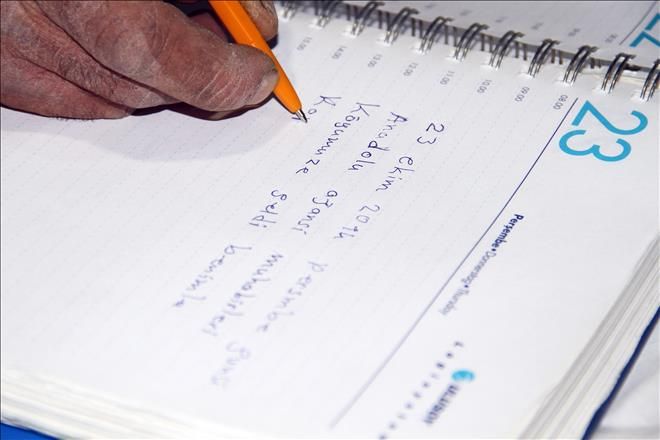 22
23
Perşembe • Donnerstag • Thursday
08:00
09:00
10:00
11:00
12:00
13:00
14:00
15:00
23 ekim 2014 perşmbe günü
Anadolu ajansı muhabirleri
Köyumuze geldi benimle